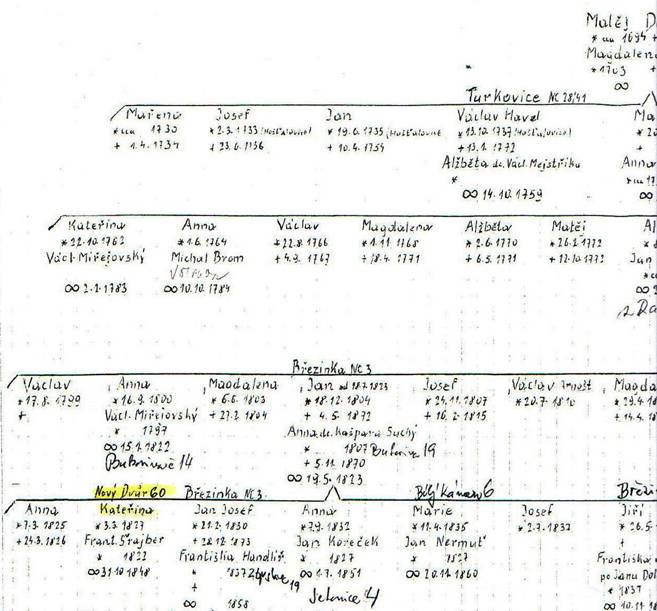 Matěj D
* 1694 +
Magdalena
* 1703 +
∞
Turkovice NC 28,41
Mařena Josef Jan Václav Havel Ma
* 1730 * 2.3.1733 (Hošťalovice) * 19.6.1735 (Hošťalovice * 13.10.1737 (Hošťalovice) * 2
+ 1.4.1734 + 23.6.1736 + 10.4.1754 + 13.1.1772
Alžběta dc. Václ. Mejstříku Anna
*
∞ 14.10.1759 ∞
Kateřina Anna Václav Magdalena Alžběta Matěj Al
* 22.10.1762 * 1.6.1764 * 22.8.1766 * 1.11.1768 * 2.6.1770 * 26.2.1772 *
Václ. Miřejovský Michal Brom + 4.9.1767 + 18.4.1771 + 6.5.1771 + 12.10.1772 Jan
∞ 2.2.1783 ∞ 10.10.1784 ∞ 2
Březinka NC 3
Václav Anna Magdalena Jan od 18.7.1823 Josef Václav Arnošt Magda
* 17.8.1799 * 16.9.1800 * 6.6.1803 * 18.12.1804 * 24.11.1807 * 20.7.1810 * 29.4.1
+ Václ. Miřejovský + 27.2.1804 + 4.5.1872 + 16.2.1815 + 14.4.1
* 1797 Anna dc. Kašpara Suchý
∞ 15.1.1822 * 1807 19
14 + 5.11.1870
∞ 19.5.1823
Nový Dvůr 60 Březinka NC 3. 6 Březin
Anna Kateřina Jan Josef Anna Marie Josef Jiří
* 7.3.1825 * 3.3.1827 * 21.2.1830 * 7.9.1832 * 11.4.1835 * 2.7.1832 * 26.5
+ 24.3.1826 Frant. Šrajber + 28.12.1873 Jan Kořeček Jan Nermuť +
* 1822 Františka Handlíř * 1827 * 1827 Františka
∞ 31.10.1848 * 1837 19 ∞ 1.7.1851 ∞ 20.11.1860 po Janu Dol
+ Jetonice 4 * 1837
∞ 1858 ∞ 10.11.18